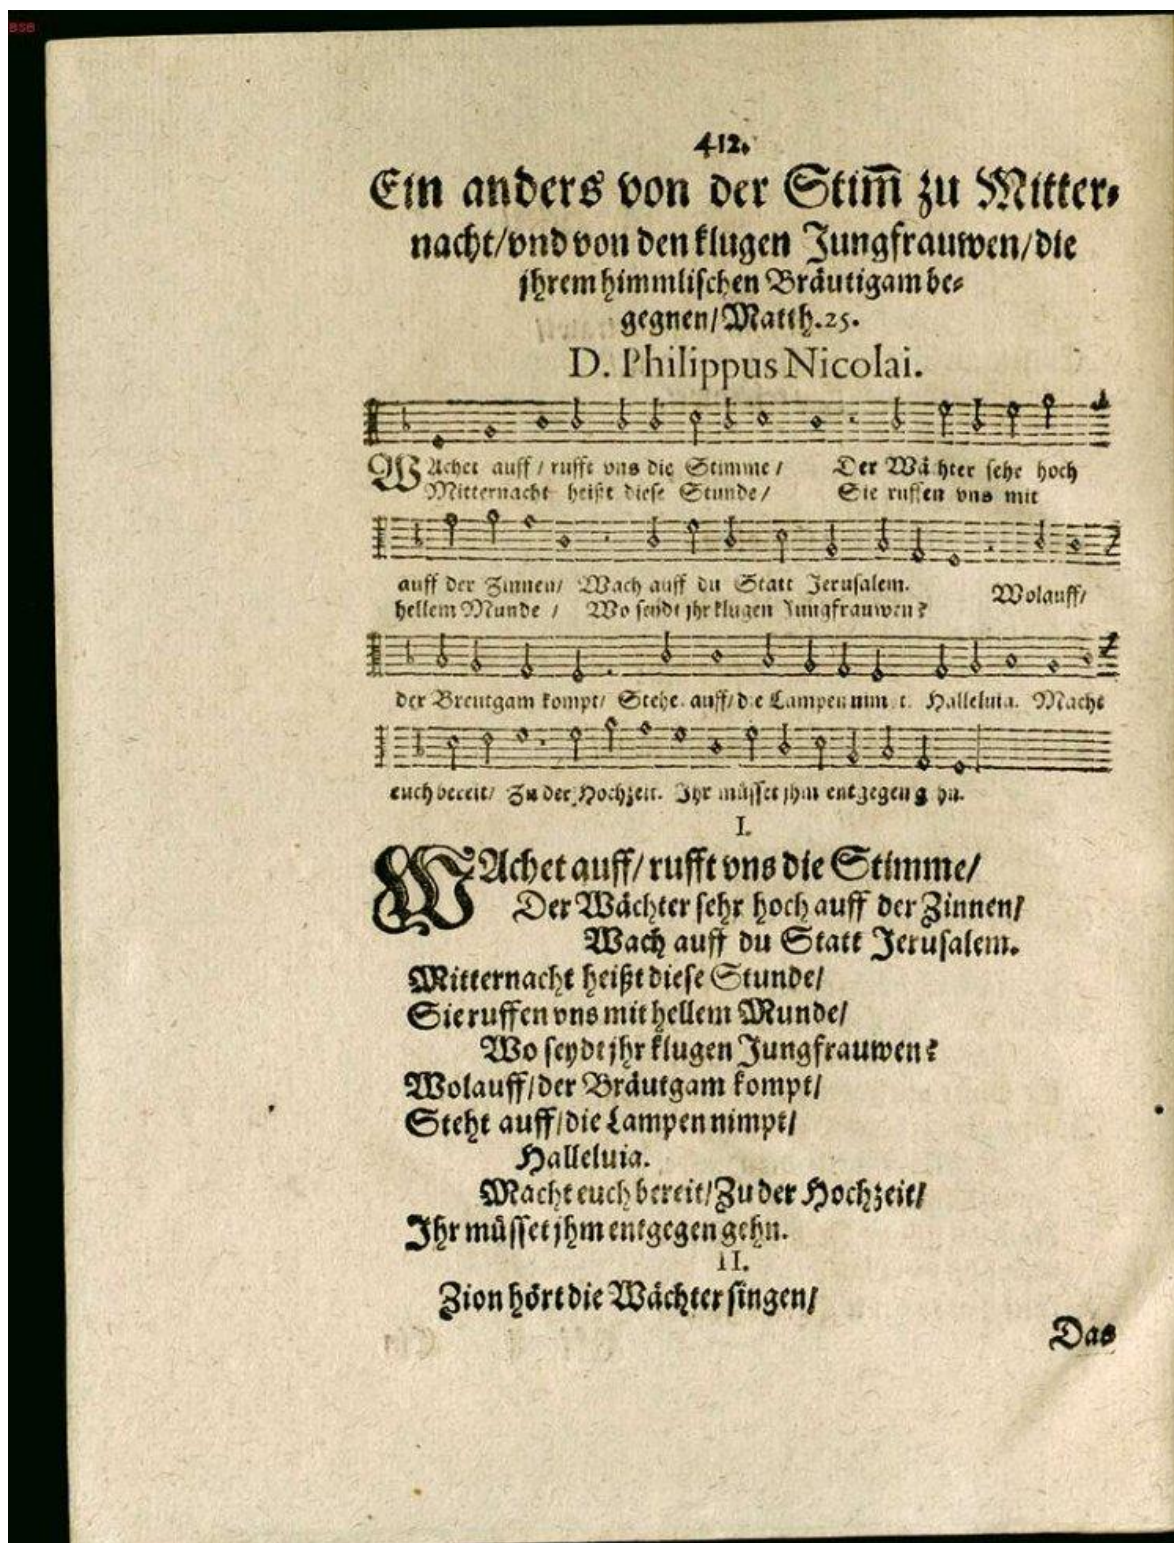 BSB
412.
Ein anders von der Stim̄ zu Mitter-
nacht/vnd von den klugen Jungfrauwen/die
jhrem himmlischen Bräutigam be-
gegnen/Matth.25.
D. Philippus Nicolai.
WAchet auff/ rufft vns die Stimme/ Der Wächter sehr hoch
Mitternacht heißt diese Stunde/ Sie ruffen vns mit
auff der Zinnen/ Wach auff du Statt Jerusalem. Wolauff/
hellem Munde / Wo seydt jhr klugen Jungfrauwen?
der Breutgam kompt/ Stehe auff/die Lampen nim t. Halleluia. Macht
euch bereit/ Zu der Hochzeit. Ihr müsset jhm entgegen g hn.
I.
WAchet auff/ rufft vns die Stimme/
Der Wächter sehr hoch auff der Zinnen/
Wach auff du Statt Jerusalem.
Mitternacht heißt diese Stunde/
Sie ruffen vns mit hellem Munde/
Wo seydt jhr klugen Jungfrauwen?
Wolauff/der Bräutgam kompt/
Steht auff/die Lampen nimpt/
Halleluia.
Macht euch bereit/Zu der Hochzeit/
Ihr müsset jhm entgegen gehn.
II.
Zion hört die Wächter singen/
Das